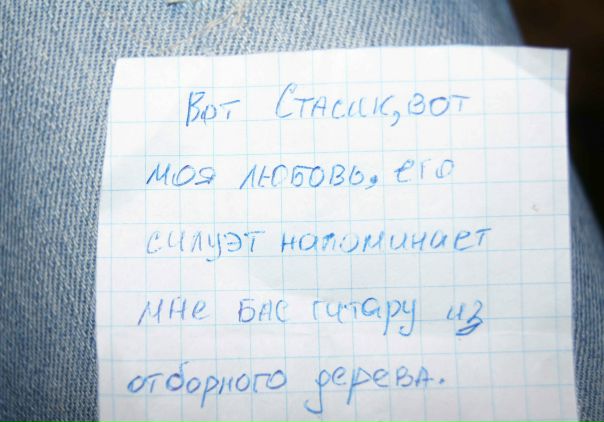 Вот Стасик, вот
моя любовь, его
силуэт напоминает
мне бас гитару из
отборного дерева.